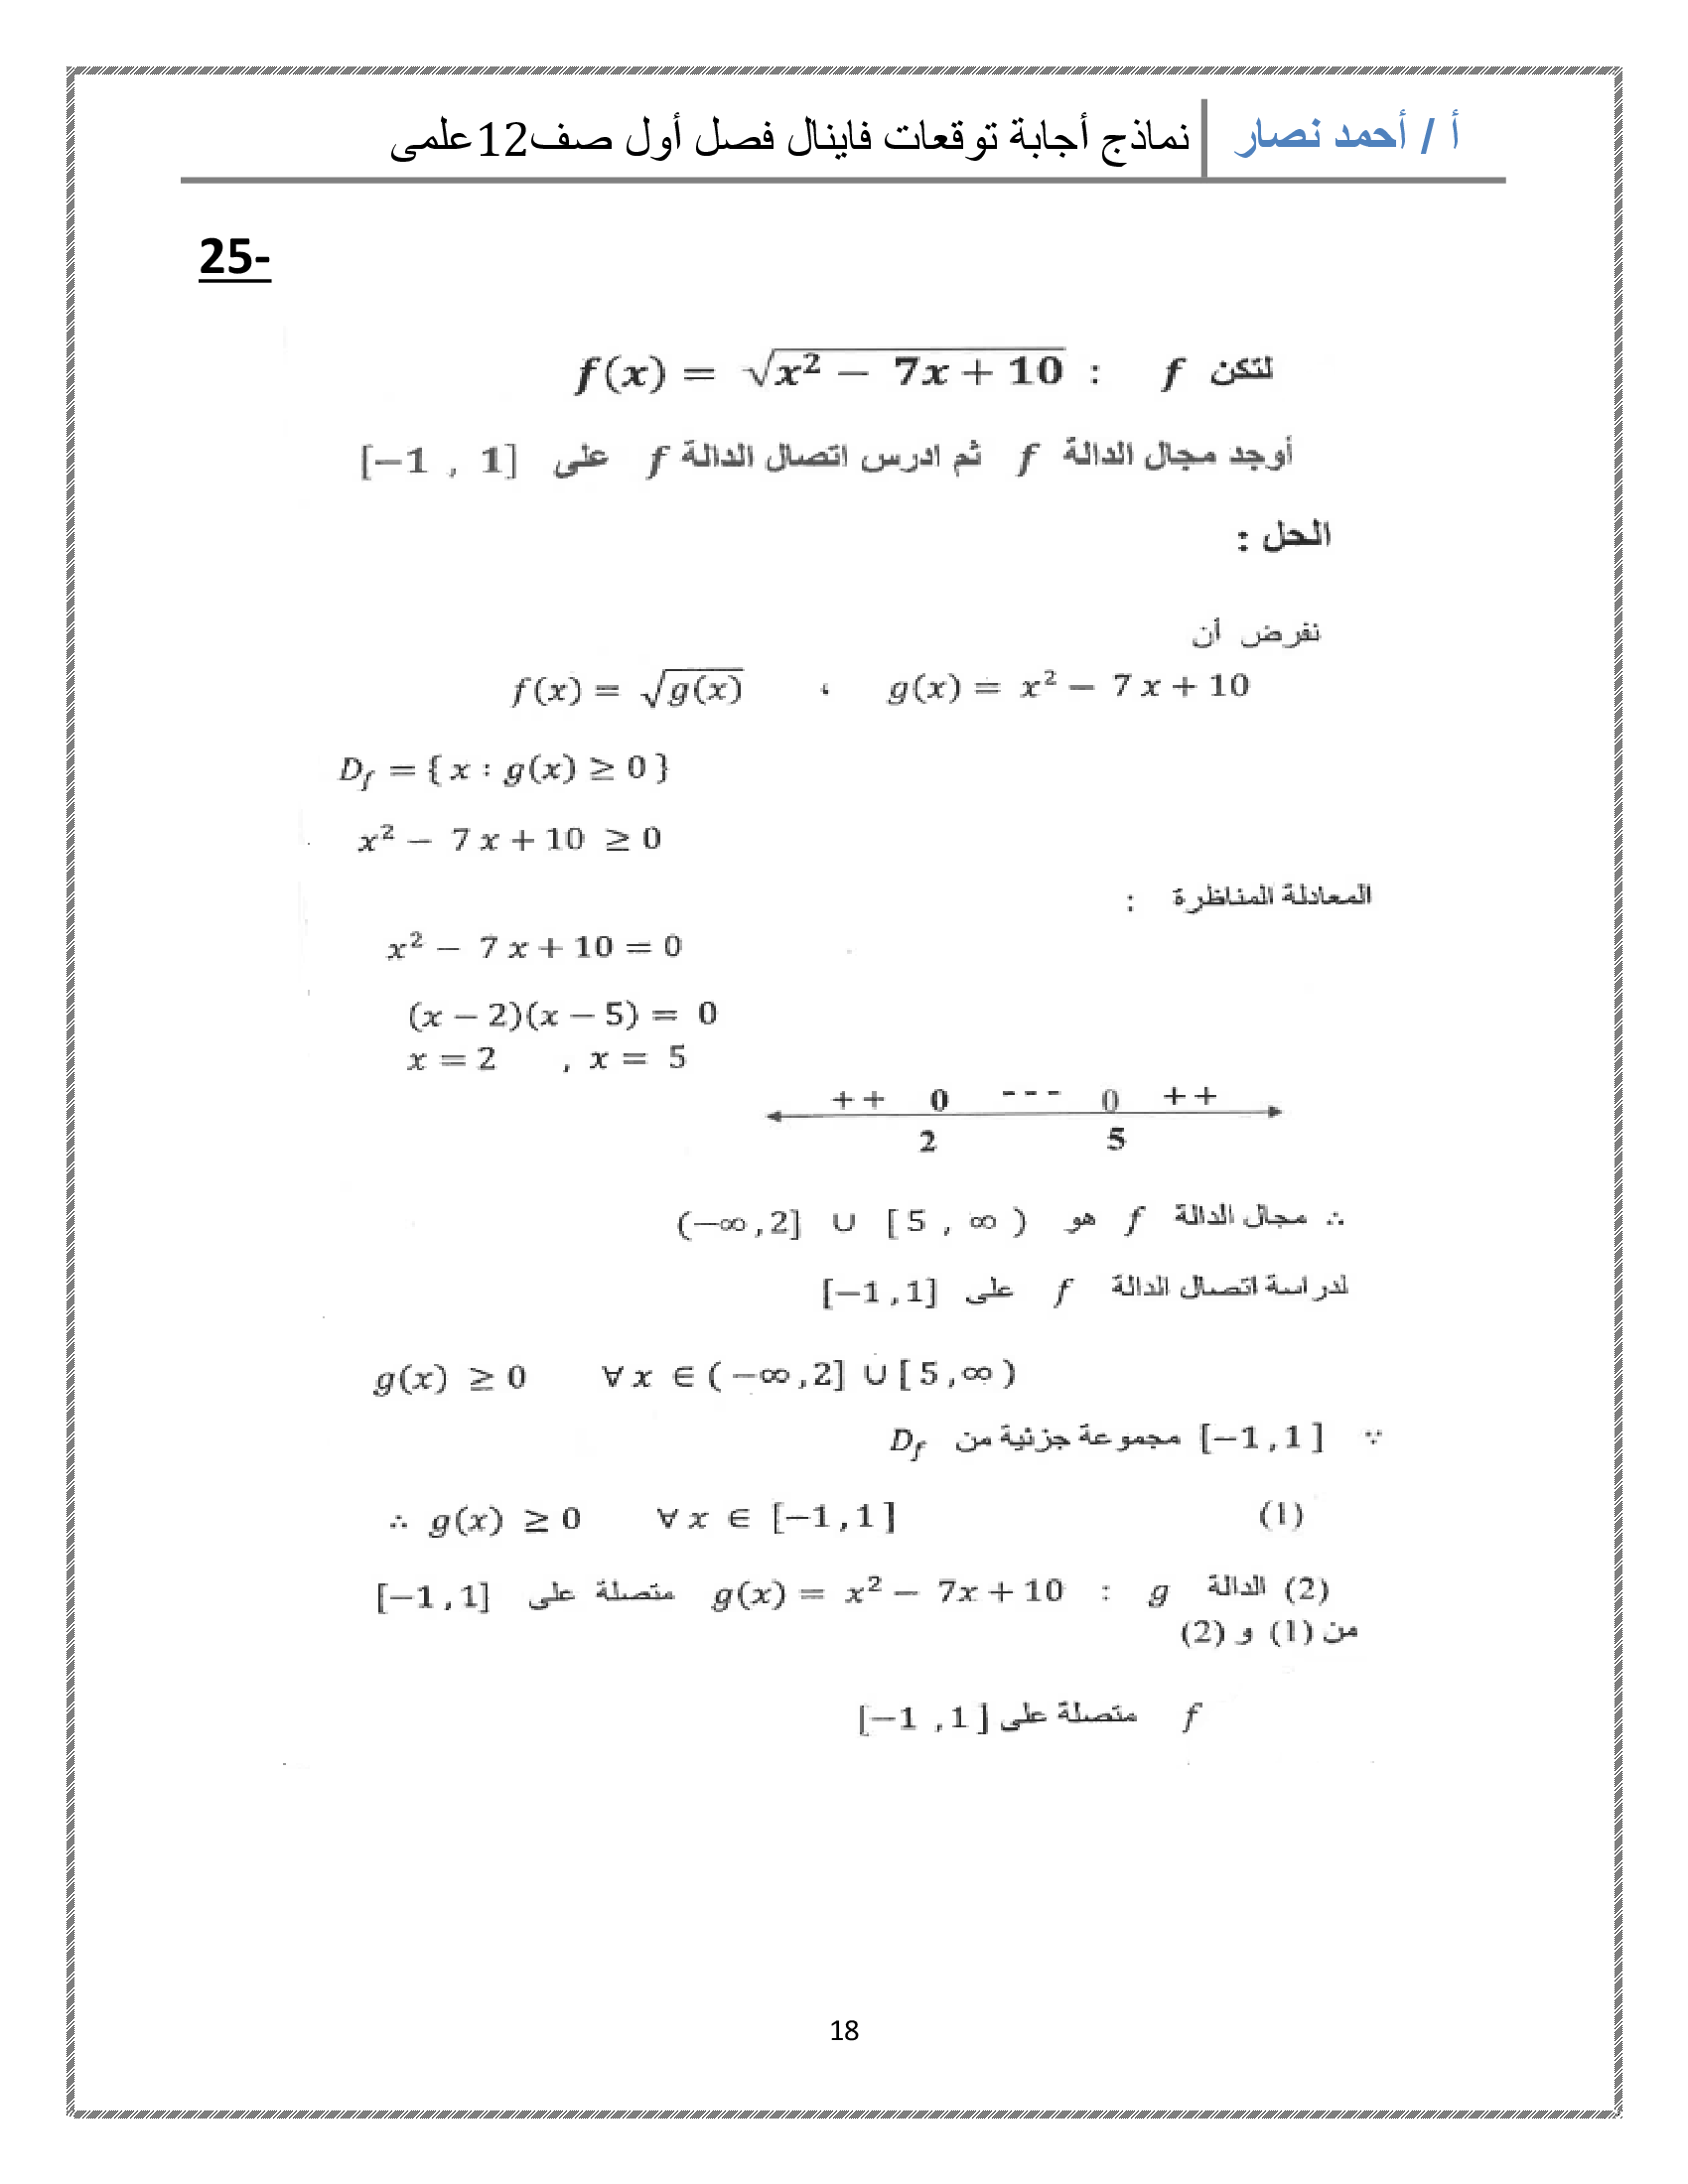 أ / أحمد نصار | نماذج أجابة توقعات فاينال فصل أول صف12علمى
25-
لتكن f : f(x) = √(x² − 7x + 10)
أوجد مجال الدالة f ثم ادرس اتصال الدالة f على [−1 , 1]
الحل :
نفرض أن
f(x) = √g(x) ، g(x) = x² − 7 x + 10
D_f = { x : g(x) ≥ 0 }
x² − 7 x + 10 ≥ 0
المعادلة المناظرة :
x² − 7 x + 10 = 0
(x − 2)(x − 5) = 0
x = 2 , x = 5
+ + 0 - - - 0 + +
2 5
∴ مجال الدالة f هو (−∞ , 2] ∪ [ 5 , ∞ )
لدراسة اتصال الدالة f على [−1 , 1]
g(x) ≥ 0 ∀ x ∈ ( −∞ , 2] ∪ [ 5 , ∞ )
∵ [−1 , 1 ] مجموعة جزئية من D_f
∴ g(x) ≥ 0 ∀ x ∈ [−1 , 1 ] (1)
(2) الدالة g : g(x) = x² − 7x + 10 متصلة على [−1 , 1]
من (1) و (2)
f متصلة على [−1 , 1 ]
18